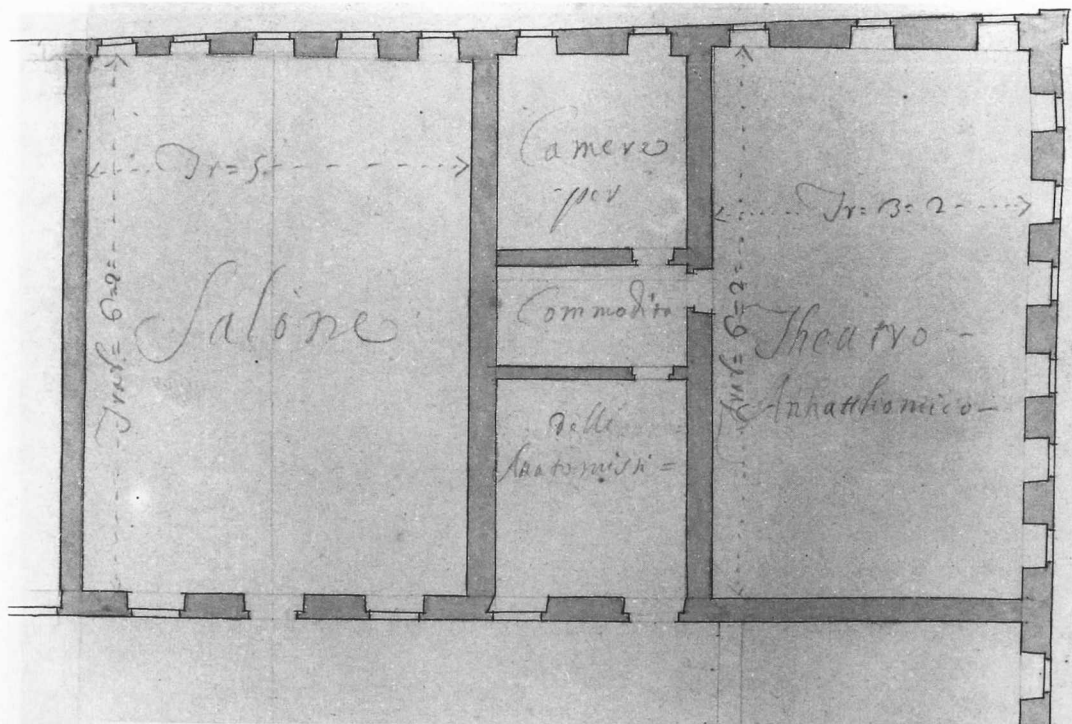 Tr= 5
Salone
Camere
per
Commodita
delli
Anatomisti =
Theatro -
Anhatthomico -